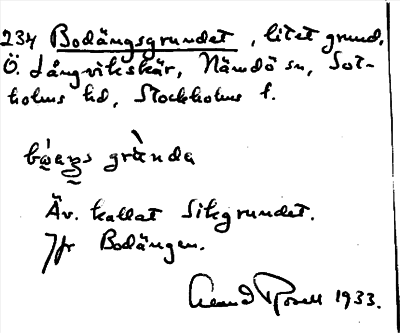 234 Bodängsgrundet, litet grund,
Ö. Långviksskär, Nämdö sn, Sot-
holms hd, Stockholms l.
grùnda
Äv. kallat Sikgrundet.
Jfr Bodängen.
1933.